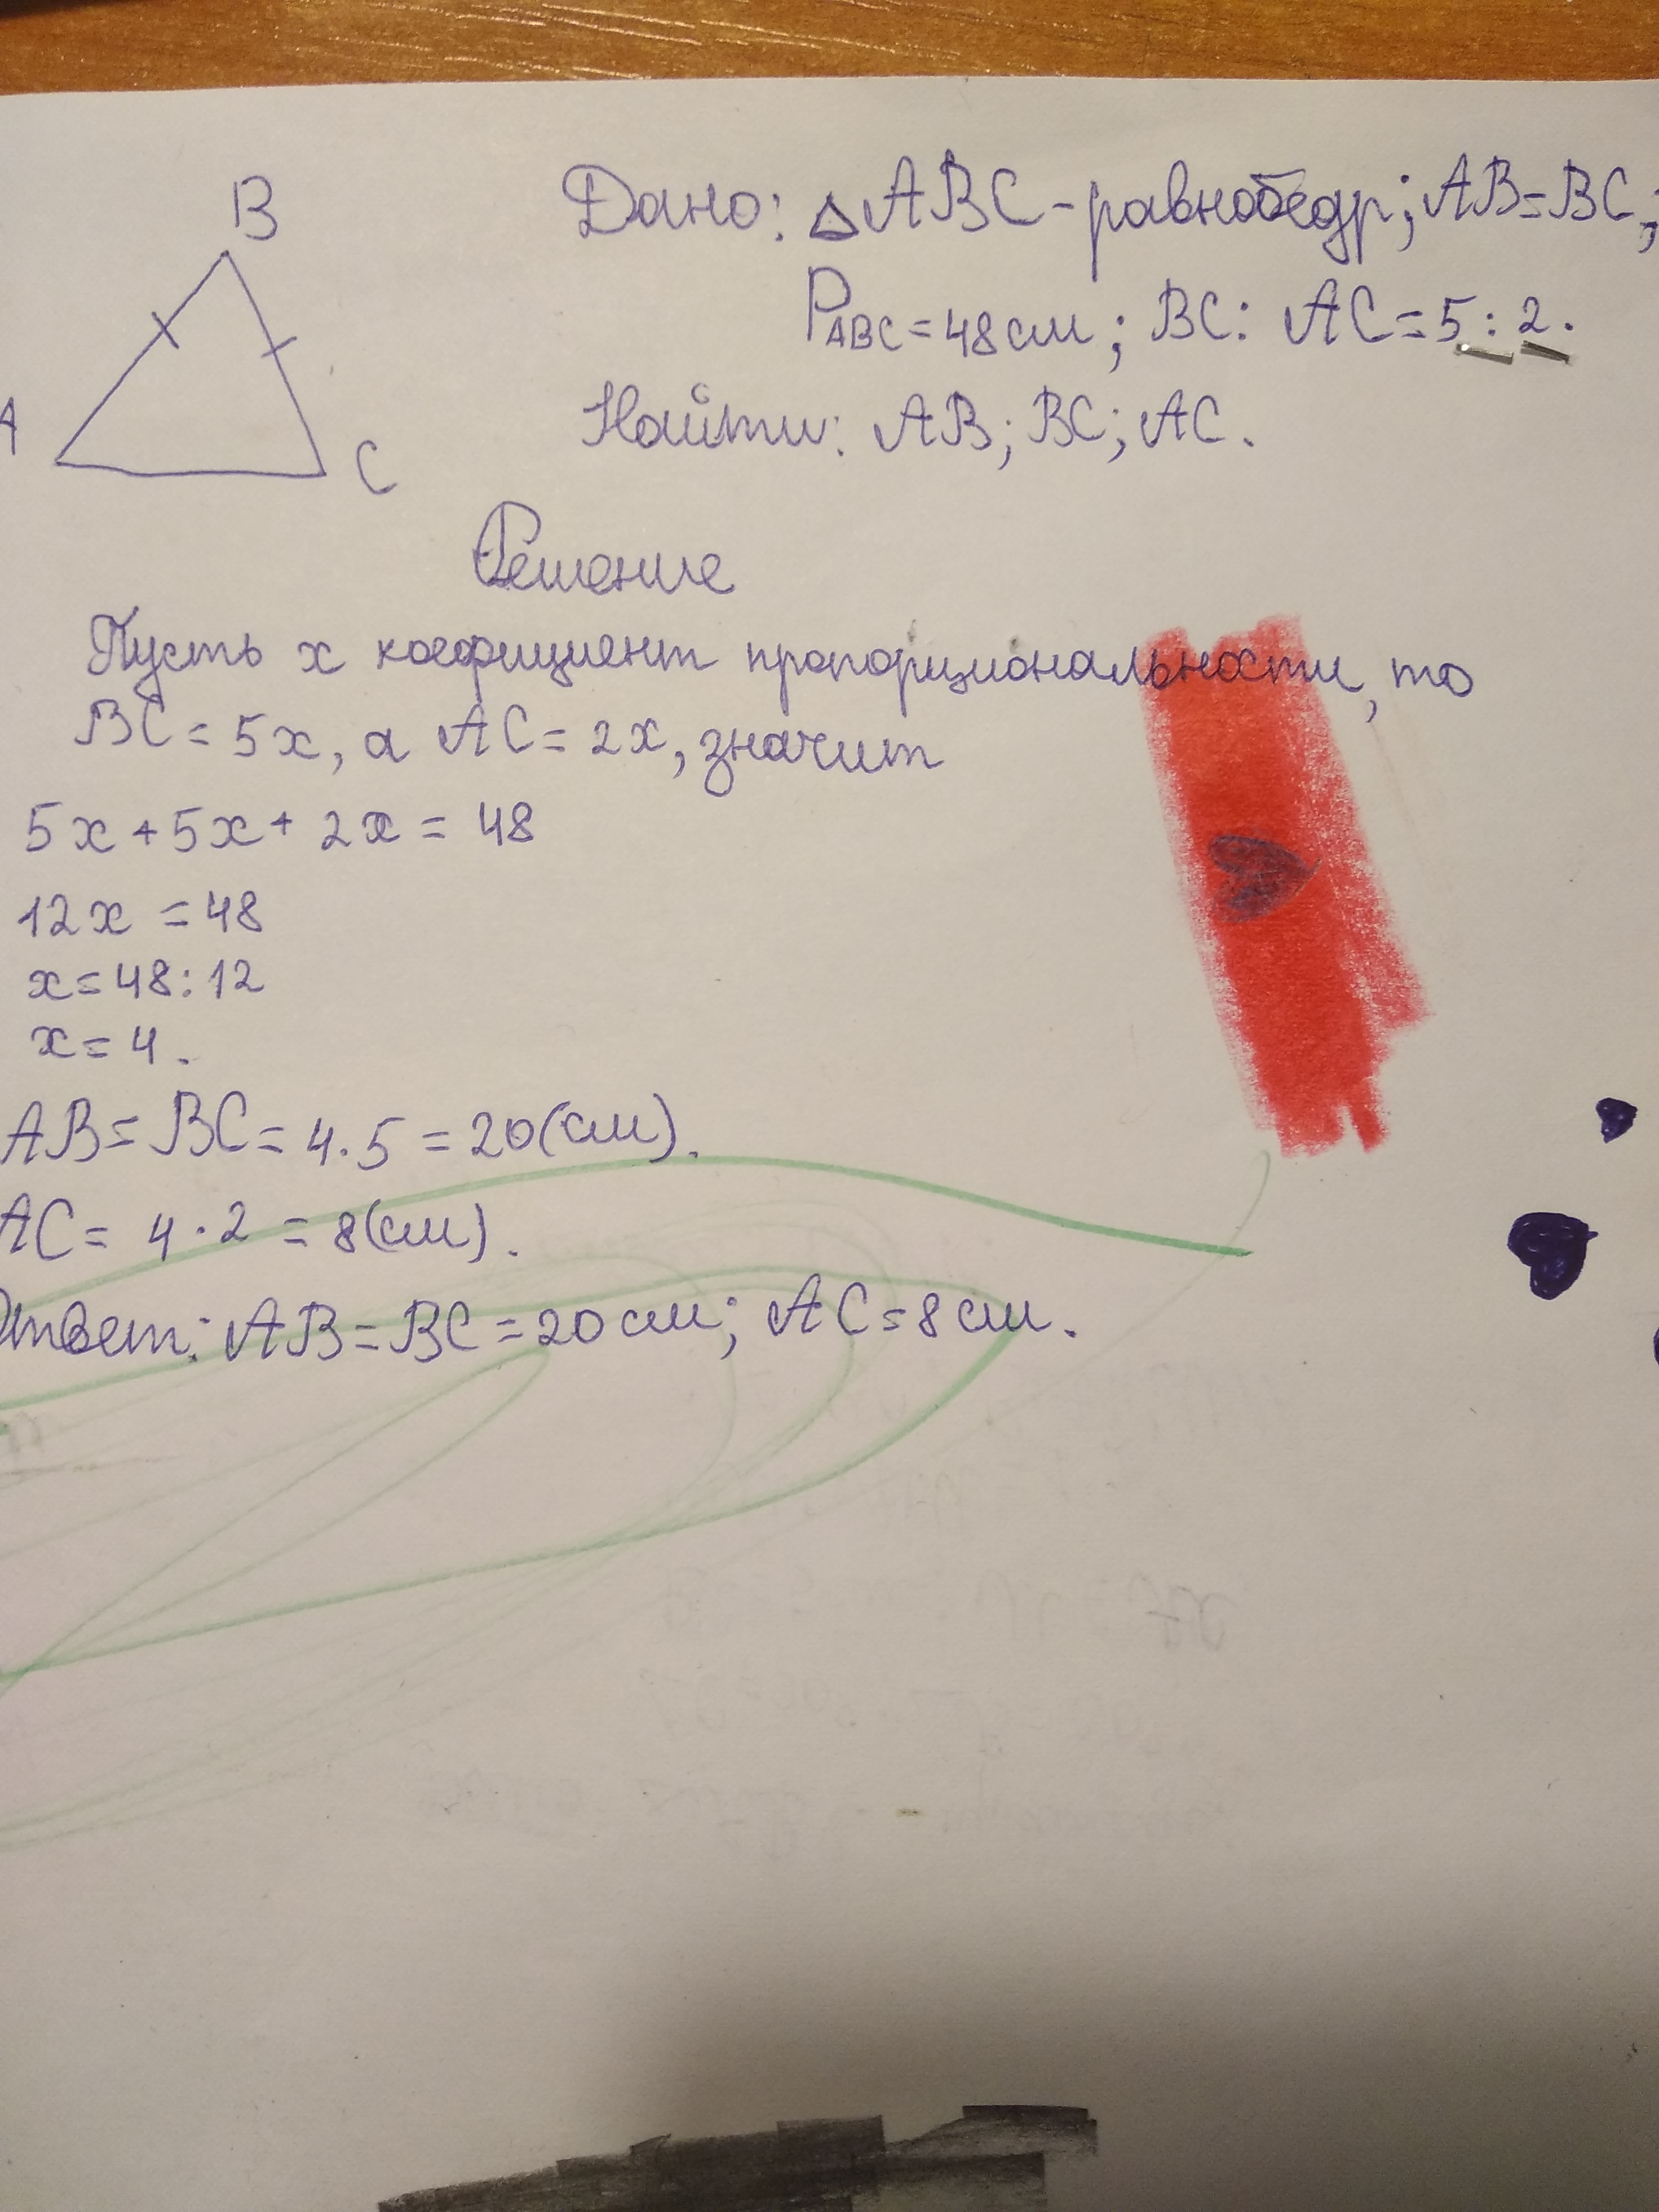 B
Дано: △ABC - равнобедр; AB = BC;
P ABC = 48 см; BC : AC = 5 : 2.
A
Найти: AB; BC; AC.
C
Решение
Пусть x коефициент пропорциональности, то
BC = 5x, а AC = 2x, значит
5x + 5x + 2x = 48
12x = 48
x = 48 : 12
x = 4.
AB = BC = 4 · 5 = 20 (см).
AC = 4 · 2 = 8 (см).
Ответ: AB = BC = 20 см; AC = 8 см.